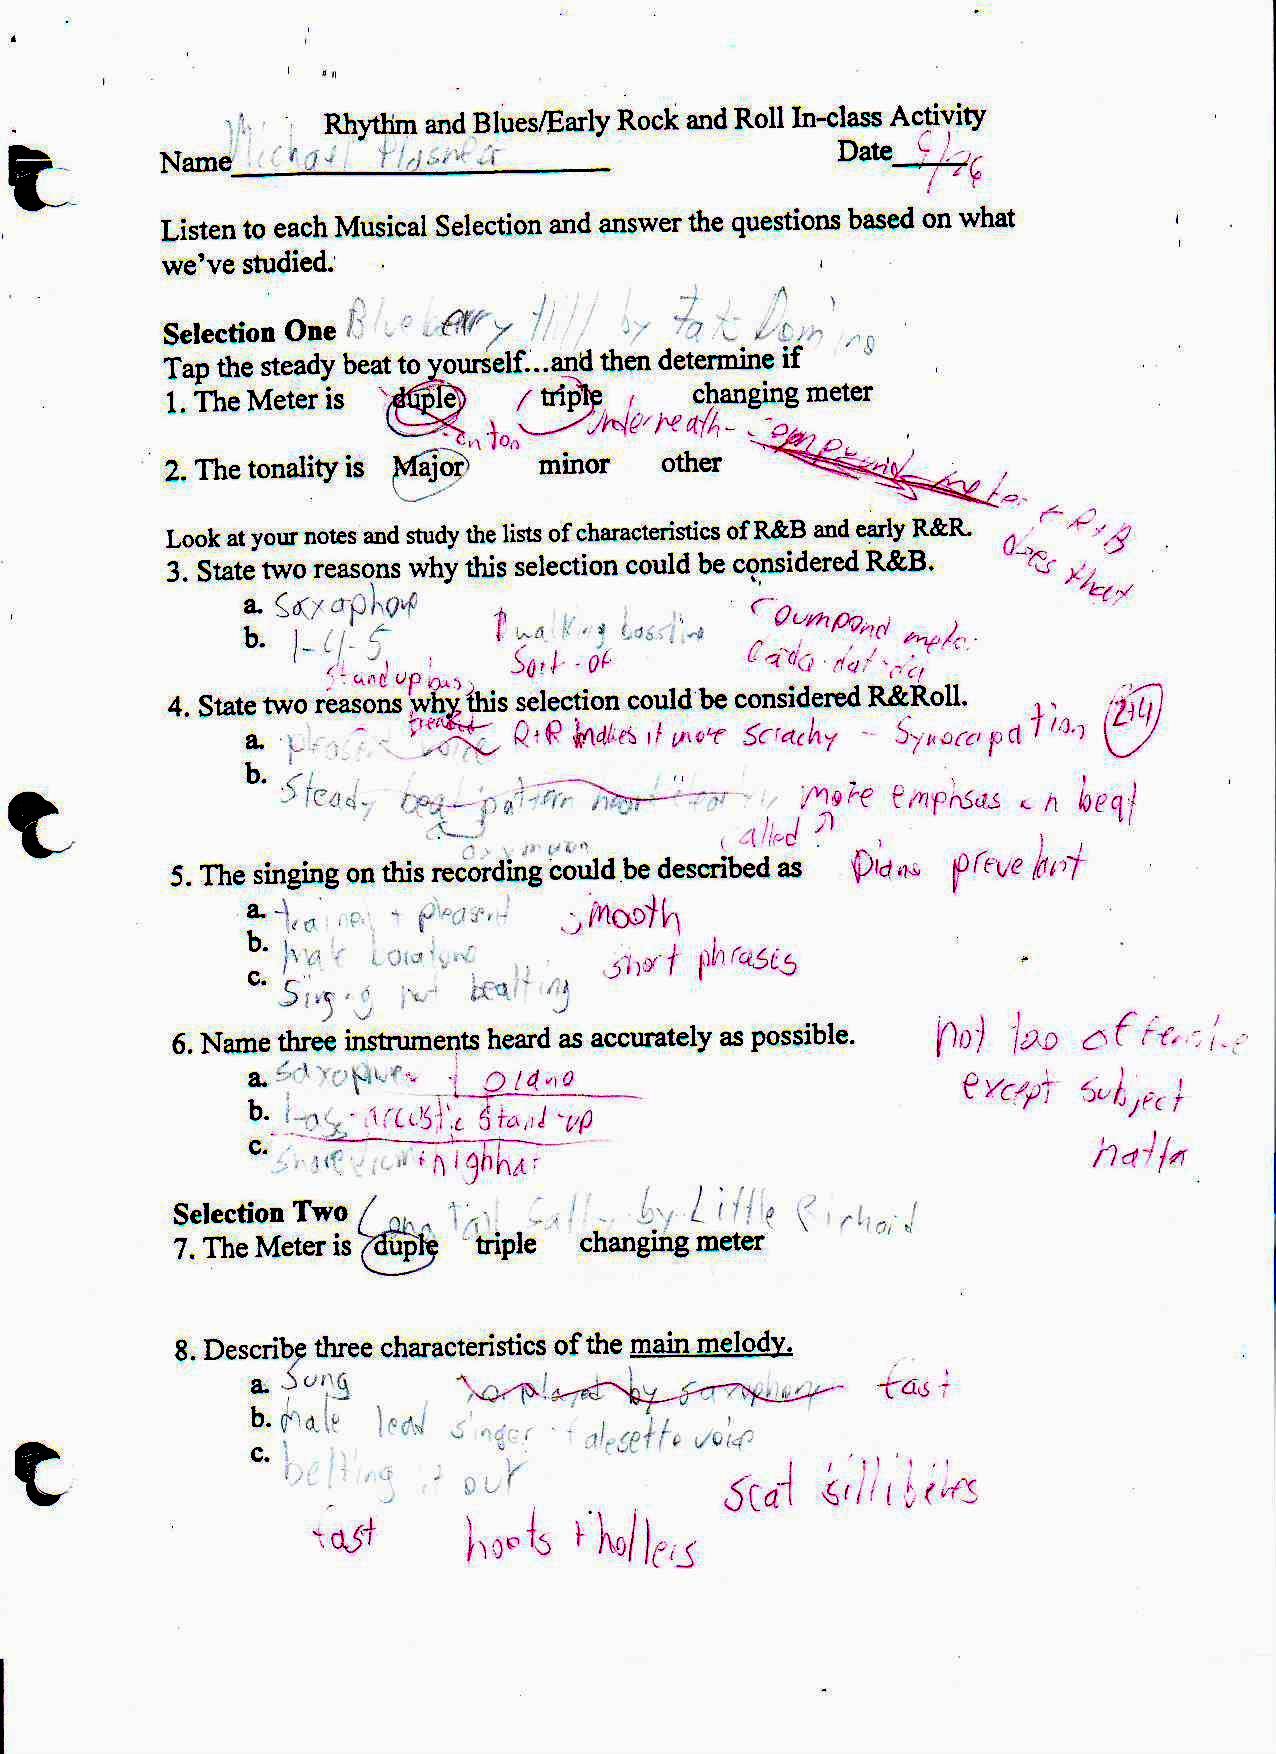 Rhythm and Blues/Early Rock and Roll In-class Activity
Name Michael Date 9/26
Listen to each Musical Selection and answer the questions based on what
we've studied.
Selection One Blueberry Hill by Fats Domino
Tap the steady beat to yourself...and then determine if
1. The Meter is duple triple changing meter
underneath - compound meter
2. The tonality is Major minor other
R+B
does that
Look at your notes and study the lists of characteristics of R&B and early R&R.
3. State two reasons why this selection could be considered R&B.
a. Saxophone
b. 1-4-5 walking bassline Coumpond meter
Stand up bass Sort-of
4. State two reasons why this selection could be considered R&Roll.
a. R+R makes it more scrachy - Synocapation (2+4)
b. Steady beat pattern more emphsas on beat
called
5. The singing on this recording could be described as Piano prevelant
a. trained + pleasent smooth
b. male short phrases
c. Singing not beatting
6. Name three instruments heard as accurately as possible. not too offensive
a. saxophone piano except subject
b. bass-accustic stand-up
c. matter
Selection Two Long Tall Sally by Little Richard
7. The Meter is duple triple changing meter
8. Describe three characteristics of the main melody.
a. Sung played by saxophone fast
b. male lead singer falesetto voice
c. belting it out
scat sillibeles
fast hoots + hollers